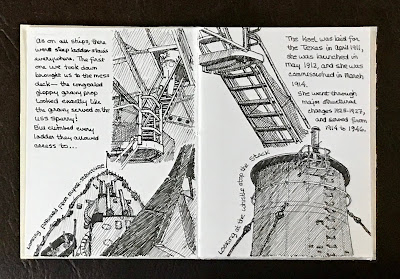 As on all ships, there
were steep ladder-stairs
everywhere. The first
one we took down
brought us to the mess
deck — the congealed
gloppy gravy prop
looked exactly like
the gravy served on the
USS Sperry!
But climbed every
ladder they allowed
access to...
Looking forward from
The keel was laid for
the Texas in April 1911,
she was launched in
May 1912, and she was
commissioned in March
1914.
She went through
major structural
changes 1925-1927,
and served from
1914 to 1946.
Looking at the whistle atop the stack